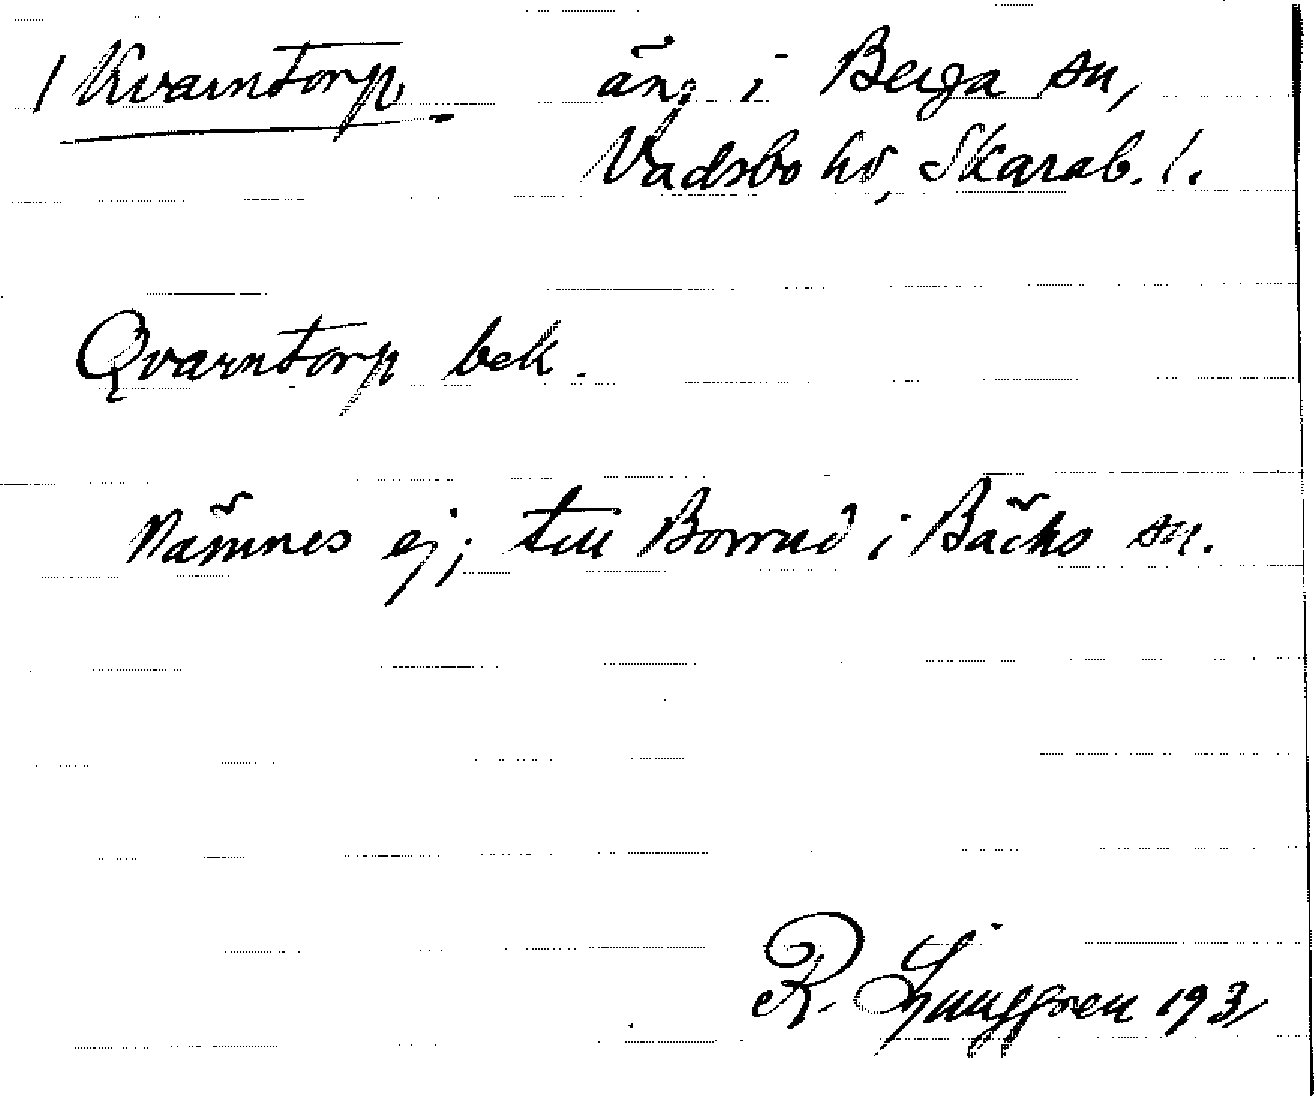 1 Kvarntorp äng i Berga sn,
Vadsbo hd, Skarab. l.
Qvarntorp bek.
Nämnes ej; till Borrud i Bäcks sn.
R. Ljunggren 1931